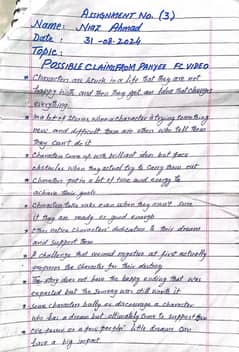 ASSIGNMENT NO. (3)
Name: Niaz Ahmad
Date: 31-08-2024
Topic:
POSSIBLE CLAIMS FROM PANYEE FC VIDEO
* Characters are stuck in a life that they are not
happy with and then they get an idea that changes
everything
* In a lot of stories when a character is trying something
new and difficult there are others who tell them
they can't do it
* Characters come up with brilliant idea but face
obstacles when they actually try to carry them out
* Characters put in a lot of time and energy to
achieve their goals
* Characters take risks even when they aren't sure
if they are ready or good enough
* Others notice characters' dedication to their dreams
and support them
* A challenge that seemed negative at first actually
prepares the character for their destiny
* The story does not have the happy ending that was
expected but the journey was still worth it
* Some characters bully or discourage a character
who has a dream but ultimately come to support
* a few people's little dreams can
have a big impact